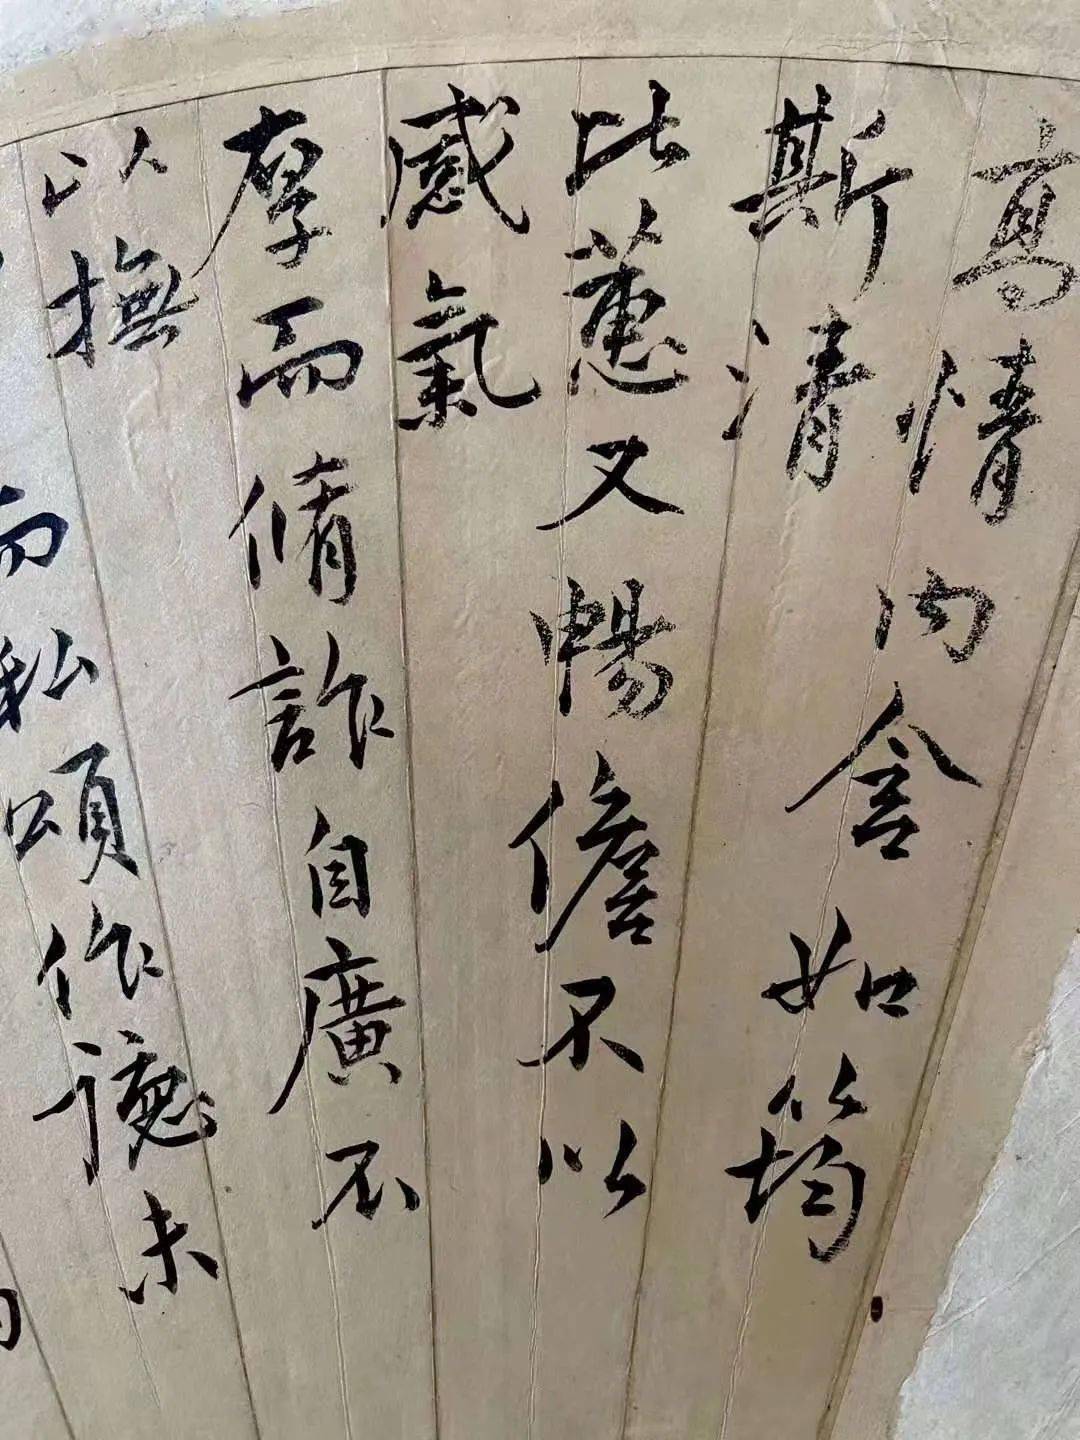 高情内含如筠
斯清
比蕙又暢儋不以
感氣
厚而脩詐自廣不
以撫
私頌作德未